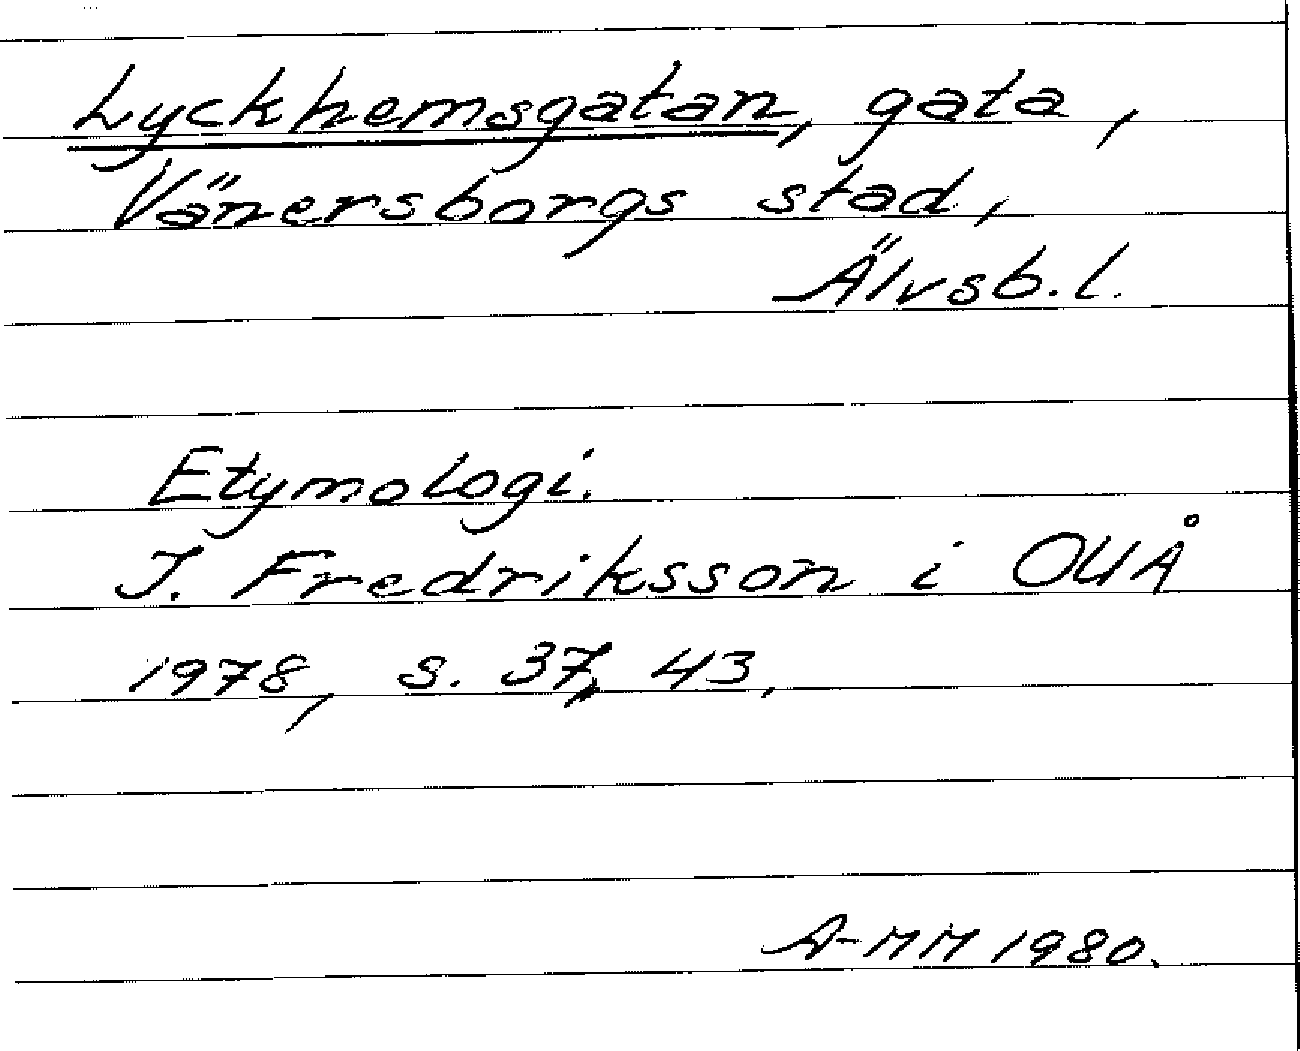 Lyckhemsgatan, gata,
Vänersborgs stad,
Älvsb. l.
Etymologi.
I. Fredriksson i OUÅ
1978, s. 37, 43.
A-MM 1980.